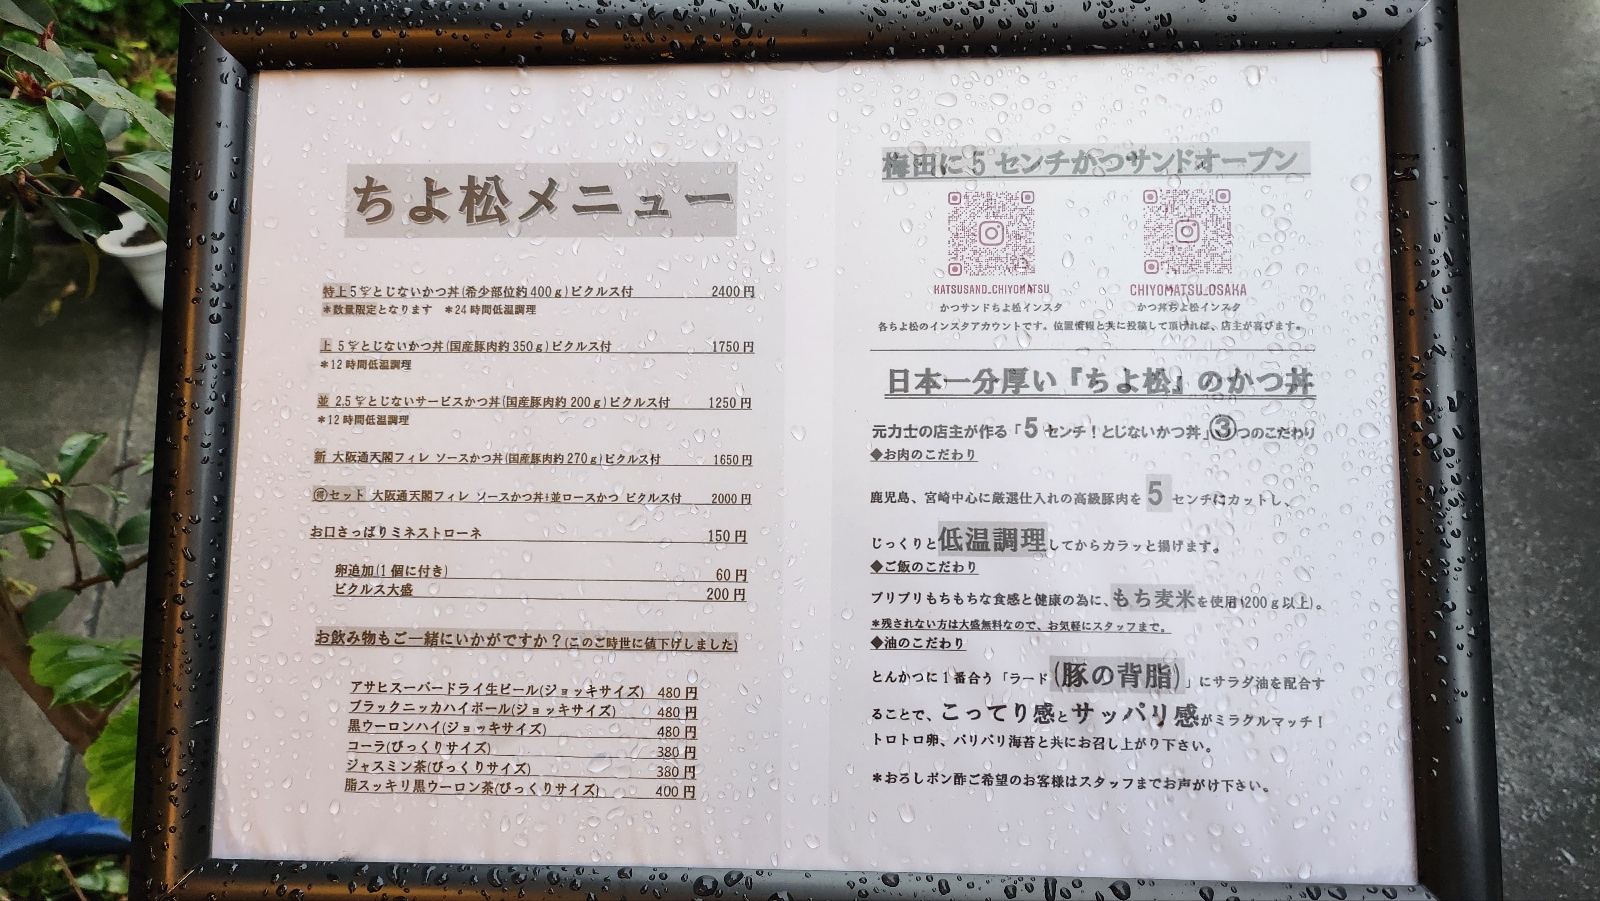 ちよ松メニュー
特上5㌢とじないかつ丼(希少部位約400g)ピクルス付 2400円
*数量限定となります *24時間低温調理
上 5㌢とじないかつ丼(国産豚肉約350g)ピクルス付 1750円
*12時間低温調理
並 2.5㌢とじないサービスかつ丼(国産豚肉約200g)ピクルス付 1250円
*12時間低温調理
新 大阪通天閣フィレ ソースかつ丼(国産豚肉約270g)ピクルス付 1650円
セット 大阪通天閣フィレ ソースかつ丼+並ロースかつ ピクルス付 2000円
お口さっぱりミネストローネ 150円
卵追加(1個に付き) 60円
ピクルス大盛 200円
お飲み物もご一緒にいかがですか?(このご時世に値下げしました)
アサヒスーパードライ生ビール(ジョッキサイズ) 480円
ブラックニッカハイボール(ジョッキサイズ) 480円
黒ウーロンハイ(ジョッキサイズ) 480円
コーラ(びっくりサイズ) 380円
ジャスミン茶(びっくりサイズ) 380円
脂スッキリ黒ウーロン茶(びっくりサイズ) 400円
梅田に5センチかつサンドオープン
KATSUSAND_CHIYOMATSU CHIYOMATSU_OSAKA
かつサンドちよ松インスタ かつ丼ちよ松インスタ
各ちよ松のインスタアカウントです。位置情報と共に投稿して頂ければ、店主が喜びます。
日本一分厚い『ちよ松』のかつ丼
元力士の店主が作る「5センチ!とじないかつ丼」③つのこだわり
◆お肉のこだわり
鹿児島、宮崎中心に厳選仕入れの高級豚肉を5センチにカットし、
じっくりと低温調理してからカラッと揚げます。
◆ご飯のこだわり
プリプリもちもちな食感と健康の為に、もち麦米を使用(200g以上)。
*残されない方は大盛無料なので、お気軽にスタッフまで。
◆油のこだわり
とんかつに1番合う「ラード(豚の背脂)」にサラダ油を配合す
ることで、こってり感とサッパリ感がミラクルマッチ!
トロトロ卵、パリパリ海苔と共にお召し上がり下さい。
*おろしポン酢ご希望のお客様はスタッフまでお声がけ下さい。